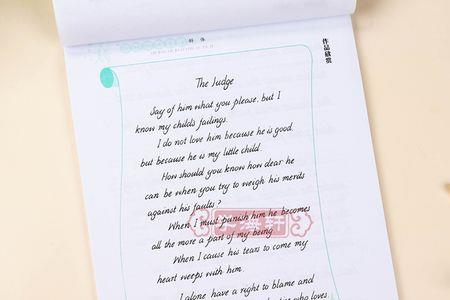 斜体
作品欣赏
The Judge
Say of him what you please, but I
know my child's failings.
I do not love him because he is good,
but because he is my little child.
How should you know how dear he
can be when you try to weigh his merits
against his faults?
When I must punish him he becomes
all the more a part of my being.
When I cause his tears to come my
heart weeps with him.
I alone have a right to blame and
who loves